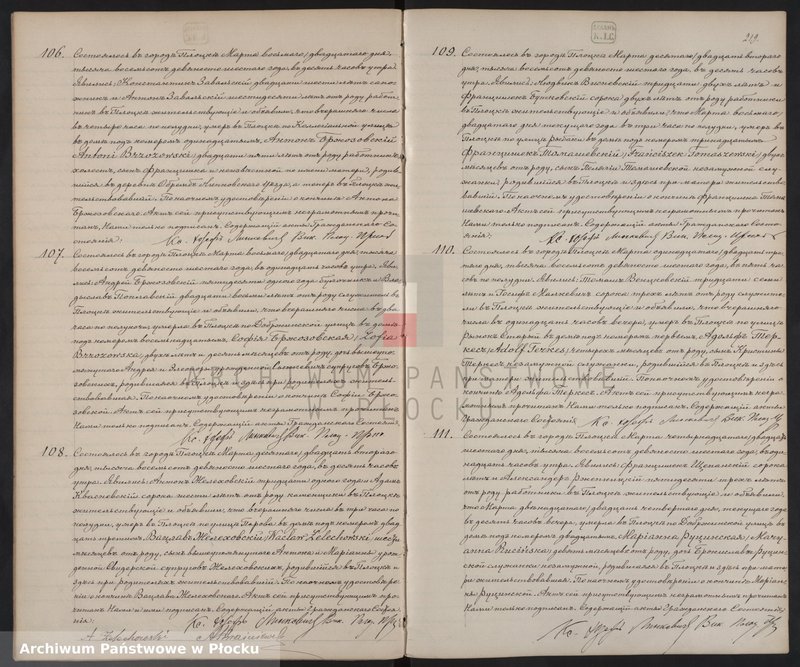 106. Состоялось въ городѣ Плоцкѣ Марта восьмаго/двадцатаго дня,
тысяча восемьсотъ девяносто шестаго года, въ десять часовъ утра.
Явились Константинъ Завальскій двадцати шести лѣтъ сапож
никъ и Антонъ Завальскій шестидесяти лѣтъ отъ роду работ
никъ въ Плоцкѣ жительствующіе и объявили, что вчерашняго числа
въ четыре часа по полудни, умеръ въ Плоцкѣ по Коллегіальной улицѣ
въ домѣ подъ номеромъ одиннадцатымъ, Антонъ Бржозовскій
Antoni Brzozowski/двадцати пяти лѣтъ отъ роду работникъ
холостъ, сынъ Францишка и неизвѣстной по имени матери, родив
шійся въ деревнѣ
тельствовавшій. По наочномъ удостовѣреніи о кончинѣ Антона
Бржозовскаго. Актъ сей присутствующимъ неграмотнымъ прочи
танъ, Нами только подписанъ. Содержащій акты Гражданскаго Со
стоянія:
107. Состоялось въ городѣ Плоцкѣ Марта восьмаго/двадцатаго дня, тысяча
восемьсотъ девяносто шестаго года, въ одиннадцать часовъ утра. Яви
лись Андрей Бржозовскій пятидесяти одного года
Поплавскій двадцати восьми лѣтъ отъ роду служители въ
Плоцкѣ жительствующіе и объявили, что вчерашняго числа въ два
часа по полудни, умерла въ Плоцкѣ по Добржинской улицѣ въ домѣ
подъ номеромъ восемнадцатымъ, Софія Бржозовская/Zofia
Brzozowska/двухъ лѣтъ и десяти мѣсяцевъ отъ роду, дочь вышеупо
мянутаго Андрея и супруговъ Бржо
зовскихъ, родившаяся въ Плоцкѣ и здѣсь при родителяхъ житель
ствовавшая. По наочномъ удостовѣреніи о кончинѣ Софіи Бржо
зовской. Актъ сей присутствующимъ неграмотнымъ прочитанъ
Нами только подписанъ. Содержащій акты Гражданскаго Состоянія
108. Состоялось въ городѣ Плоцкѣ Марта десятаго/двадцать втораго
дня, тысяча восемьсотъ девяносто шестаго года, въ десять часовъ
утра. Явились Антонъ Желеховскій тридцати одного года и Адамъ
Квасневскій сорока шести лѣтъ отъ роду каменщики въ Плоцкѣ
жительствующіе и объявили, что вчерашняго числа въ три часа по
полудни, умеръ въ Плоцкѣ по улицѣ въ домѣ подъ номеромъ двад
цать третьимъ, Вацлавъ Желеховскій/Wacław Żelechowski/
мѣсяцевъ отъ роду, сынъ вышеупомянутаго Антона и Маріанны урож
денной супруговъ Желеховскихъ, родившійся въ Плоцкѣ и
здѣсь при родителяхъ жительствовавшій. По наочномъ удостовѣре
ніи о кончинѣ Вацлава Желеховскаго. Актъ сей присутствующимъ про
читанъ Нами и ими подписанъ. Содержащій акты Гражданскаго Состоя
нія:
A. Żelechowski
219.
109. Состоялось въ городѣ Плоцкѣ Марта десятаго/двадцать втораго
дня, тысяча восемьсотъ девяносто шестаго года, въ десять часовъ
утра. Явились Людвикъ Висневскій тридцати двухъ лѣтъ и
Францишекъ Бутковскій сорока двухъ лѣтъ отъ роду работники
въ Плоцкѣ жительствующіе и объявили, что Марта восьмаго/
двадцатаго дня текущаго года въ три часа по полудни, умеръ въ
Плоцкѣ по улицѣ Рыбаки въ домѣ подъ номеромъ тринадцатымъ
Францишекъ Томашевскій/Franciszek Tomaszewski/двухъ
мѣсяцевъ отъ роду, сынъ Томашевской незамужней слу
жанки, родившійся въ Плоцкѣ и здѣсь при матери жительство
вавшій. По наочномъ удостовѣреніи о кончинѣ Францишка Тома
шевскаго. Актъ сей присутствующимъ неграмотнымъ прочитанъ
Нами только подписанъ. Содержащій акты Гражданскаго Состо
янія:
110. Состоялось въ городѣ Плоцкѣ Марта одиннадцатаго/двадцать тре
тьяго дня, тысяча восемьсотъ девяносто шестаго года, въ пять ча
совъ по полудни. Явились Томашъ Венцковскій тридцати семи
лѣтъ и Іосифъ Малкевичъ сорока трехъ лѣтъ отъ роду служите
ли въ Плоцкѣ жительствующіе и объявили, что вчерашняго
числа въ одиннадцать часовъ вечера, умеръ въ Плоцкѣ по улицѣ
Рынокъ Старый въ домѣ подъ номеромъ первымъ, Адольфъ
четырехъ мѣсяцевъ отъ роду, сынъ
незамужней, родившійся въ Плоцкѣ и здѣсь
жительствовавшій. По наочномъ удостовѣреніи о
кончинѣ Адольфа. Актъ сей присутствующимъ негра
мотнымъ прочитанъ Нами только подписанъ. Содержащій акты
Гражданскаго Состоянія
111. Состоялось въ городѣ Плоцкѣ Марта четырнадцатаго/двадцать
шестаго дня, тысяча восемьсотъ девяносто шестаго года, въ один
надцать часовъ утра. Явились Францишекъ Щепанскій сорока
лѣтъ и Александръ пятидесяти трехъ лѣтъ
отъ роду работники въ Плоцкѣ жительствующіе и объявили,
что Марта двѣнадцатаго/двадцать четвертаго дня, текущаго года
въ десять часовъ вечера, умерла въ Плоцкѣ по Добржинской улицѣ въ
домѣ подъ номеромъ двадцатымъ, Маріанна Руцинская/Mary
anna Rucińska/девяти мѣсяцевъ отъ роду, дочь Брониславы Руцин
ской служанки незамужней, родившаяся въ Плоцкѣ и здѣсь при мате
ри жительствовавшая. По наочномъ удостовѣреніи о кончинѣ Маріан
ны Руцинской. Актъ сей присутствующимъ неграмотнымъ прочитанъ
Нами только подписанъ. Содержащій акты Гражданскаго Состоянія
ARCHIWUM PAŃSTWOWE
W PŁOCKU
Archiwum Państwowe w Płocku